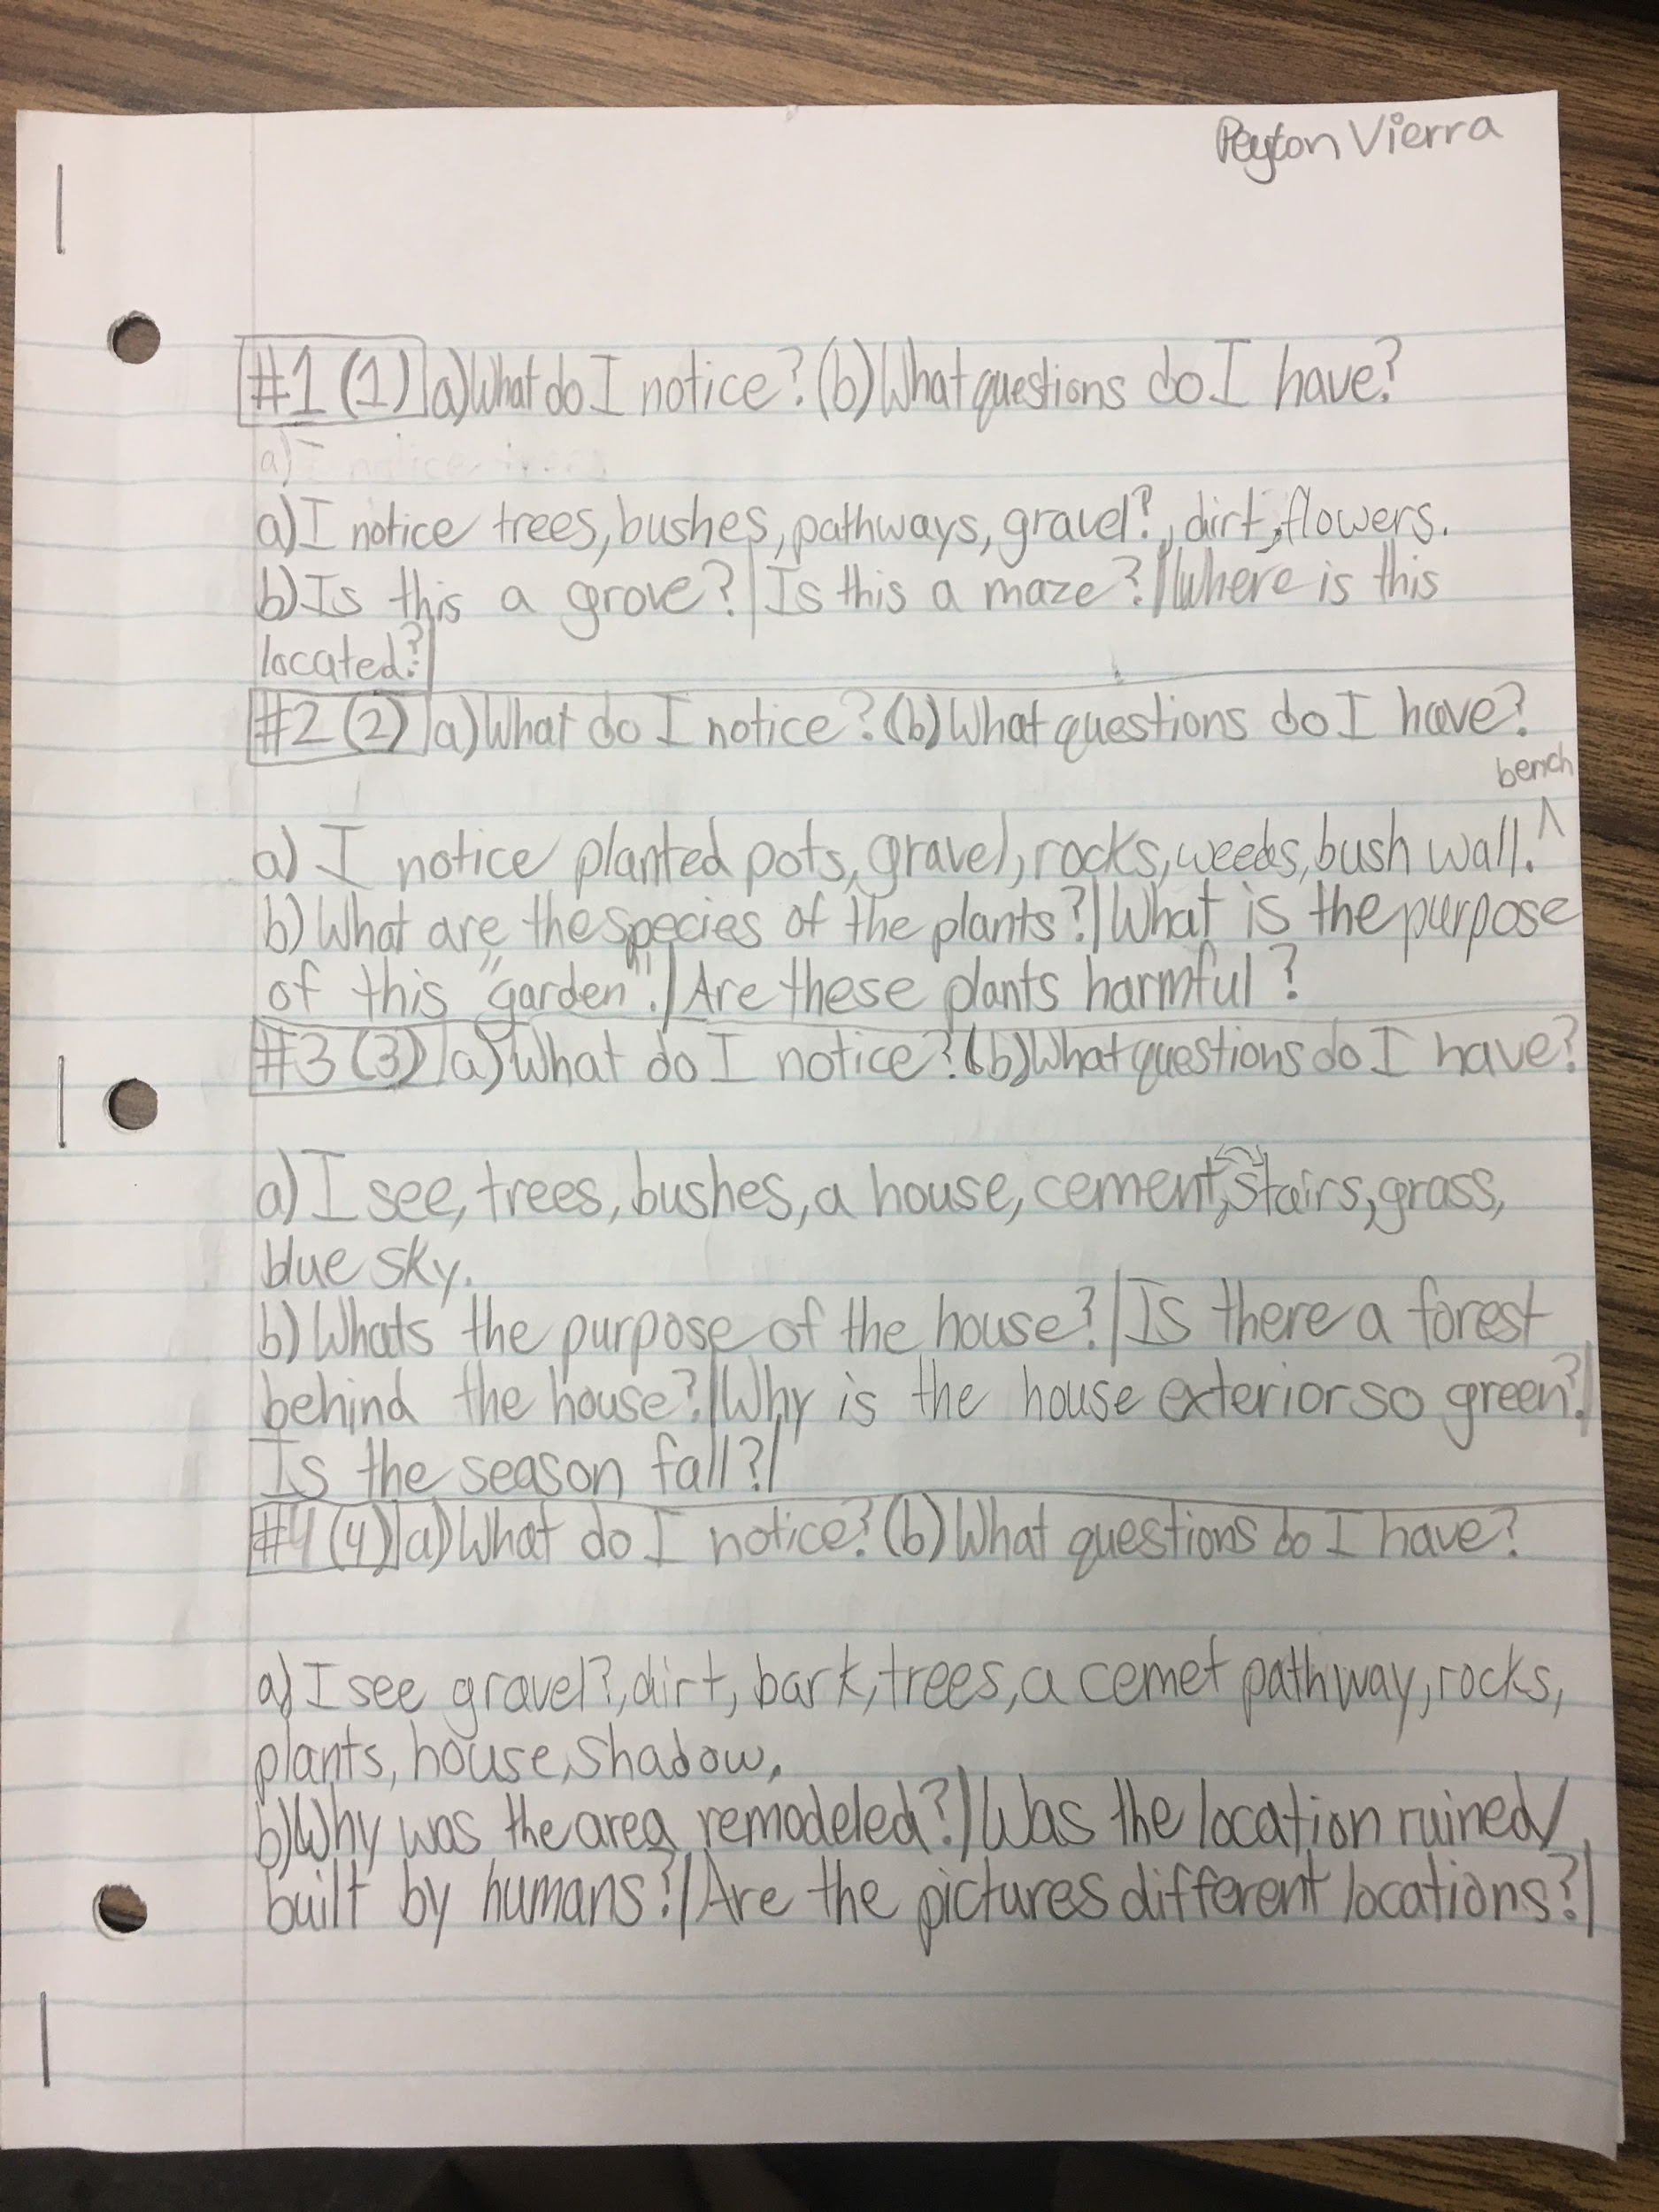 Peyton Vierra
#1 (1) a) What do I notice? (b) What questions do I have?
a) I notice trees
a) I notice trees, bushes, pathways, gravel?, dirt, flowers.
b) Is this a grove? | Is this a maze? | Where is this
located? |
#2 (2) a) What do I notice? (b) What questions do I have?
bench
a) I notice planted pots, gravel, rocks, weeds, bush wall. ^
b) What are the species of the plants? | What is the purpose
of this "garden". | Are these plants harmful?
#3 (3) a) What do I notice? (b) What questions do I have?
a) I see, trees, bushes, a house, cement, stairs, grass,
blue sky.
b) Whats the purpose of the house? | Is there a forest
behind the house? | Why is the house exterior so green? |
Is the season fall? |
#4 (4) a) What do I notice? (b) What questions do I have?
a) I see gravel?, dirt, bark, trees, a cemet pathway, rocks,
plants, house, shadow,
b) Why was the area remodeled? | Was the location ruined/
built by humans? | Are the pictures different locations? |